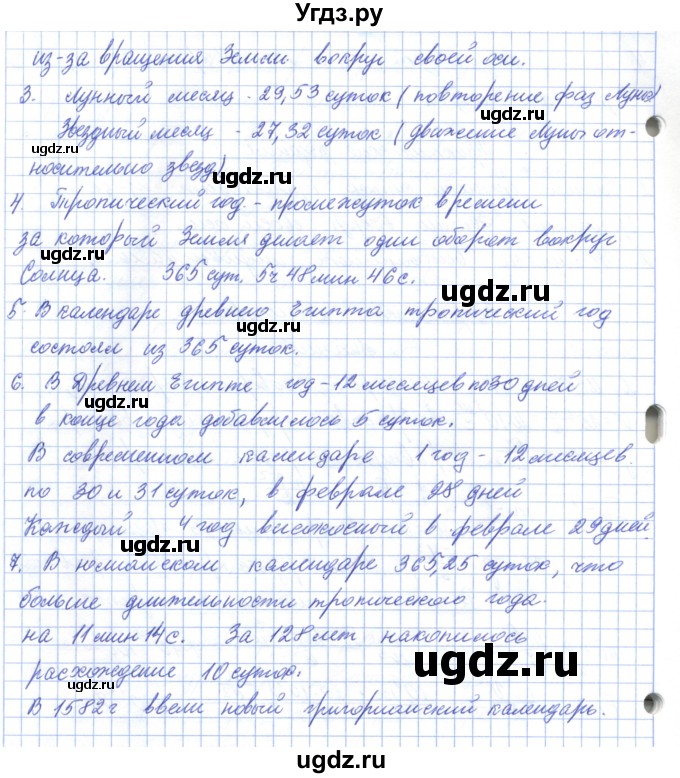 Угдз.ру
из-за вращения Земли вокруг своей оси.
3. Лунный месяц - 29,53 суток (повторение фаз Луны)
Звездный месяц - 27,32 суток (движение Луны от-
ugdz.ru
ugdz.ru
носительно звезд)
ugdz.ru
4. Тропический год - промежуток времени
за который Земля делает один оборот вокруг
Солнца. 365 сут. 5ч 48 мин 46с.
ugdz.ru
5. В календаре древнего Египта тропический год
ugdz.ru
состоял из 365 суток.
6. В Древнем Египте год - 12 месяцев по 30 дней
ugdz.ru
в конце года добавлялось 5 суток.
В современном календаре 1 год - 12 месяцев
по 30 и 31 суток, в феврале 28 дней
ugdz.ru
Каждый 4 год високосный в феврале 29 дней.
ugdz.ru
7. В юлианском календаре 365,25 суток, что
больше длительности тропического года
на 11 мин 14с. За 128 лет накопилось
ugdz.ru
расхождение 10 суток.
ugdz.ru
В 1582г ввели новый григорианский календарь.
ugdz.ru